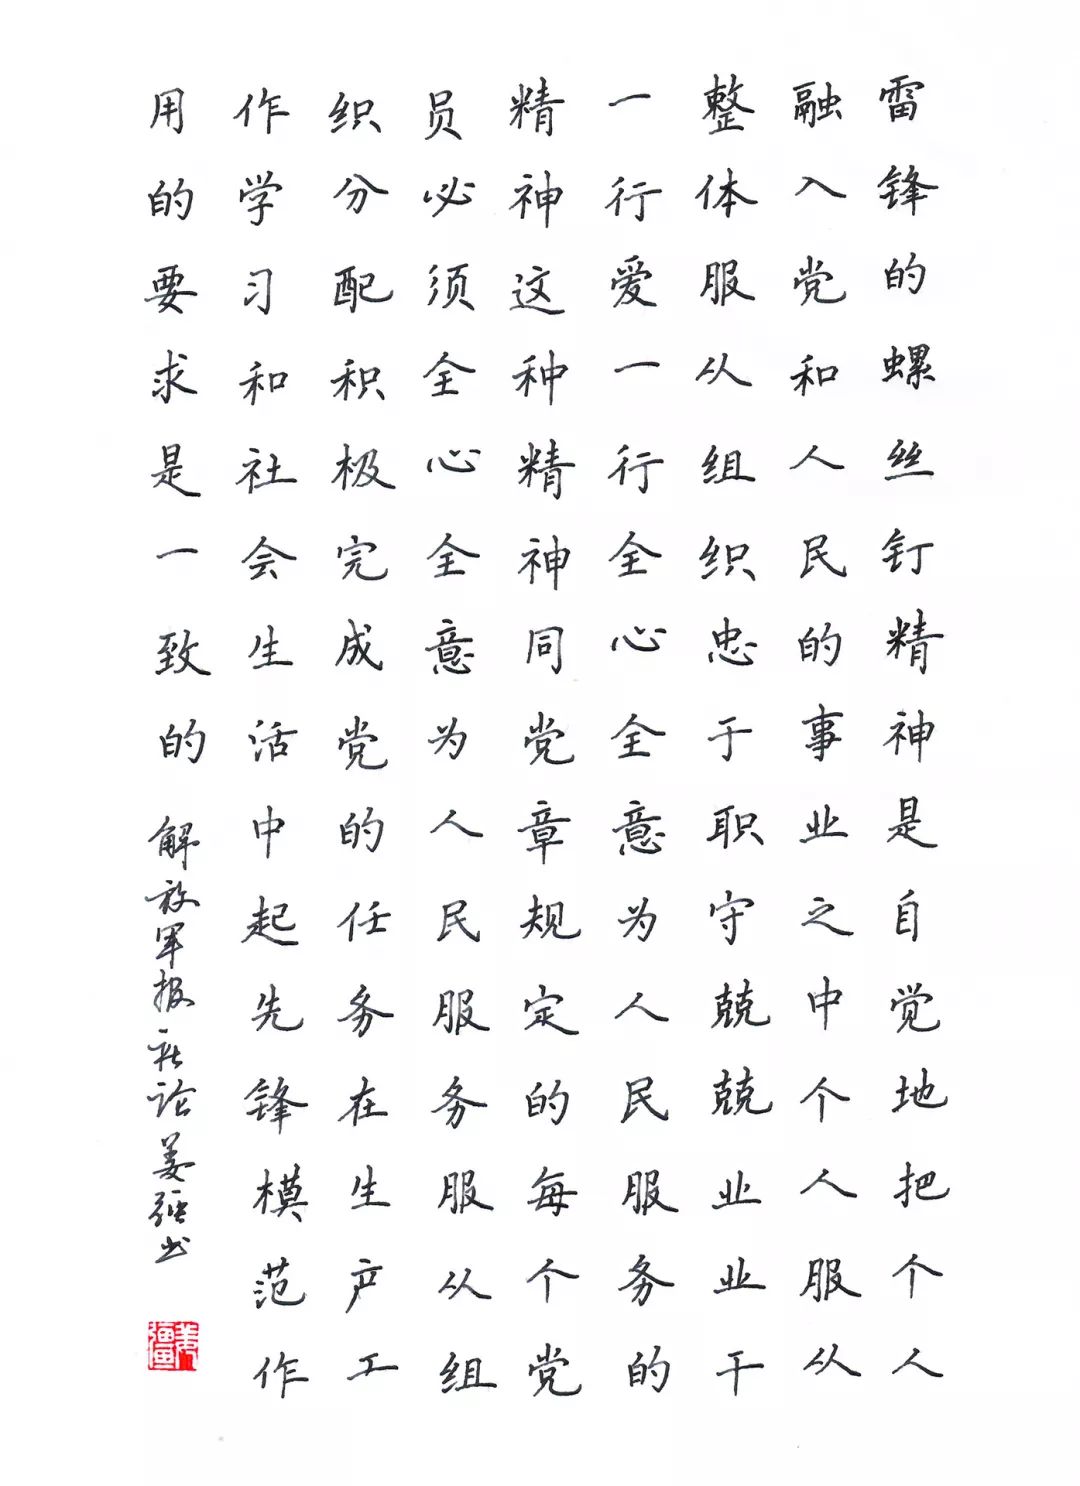 雷锋的螺丝钉精神是自觉地把个人
融入党和人民的事业之中个人服从
整体服从组织忠于职守兢兢业业干
一行爱一行全心全意为人民服务的
精神这种精神同党章规定的每个党
员必须全心全意为人民服务服从组
织分配积极完成党的任务在生产工
作学习和社会生活中起先锋模范作
用的要求是一致的
解放军报社论姜强书
姜彊